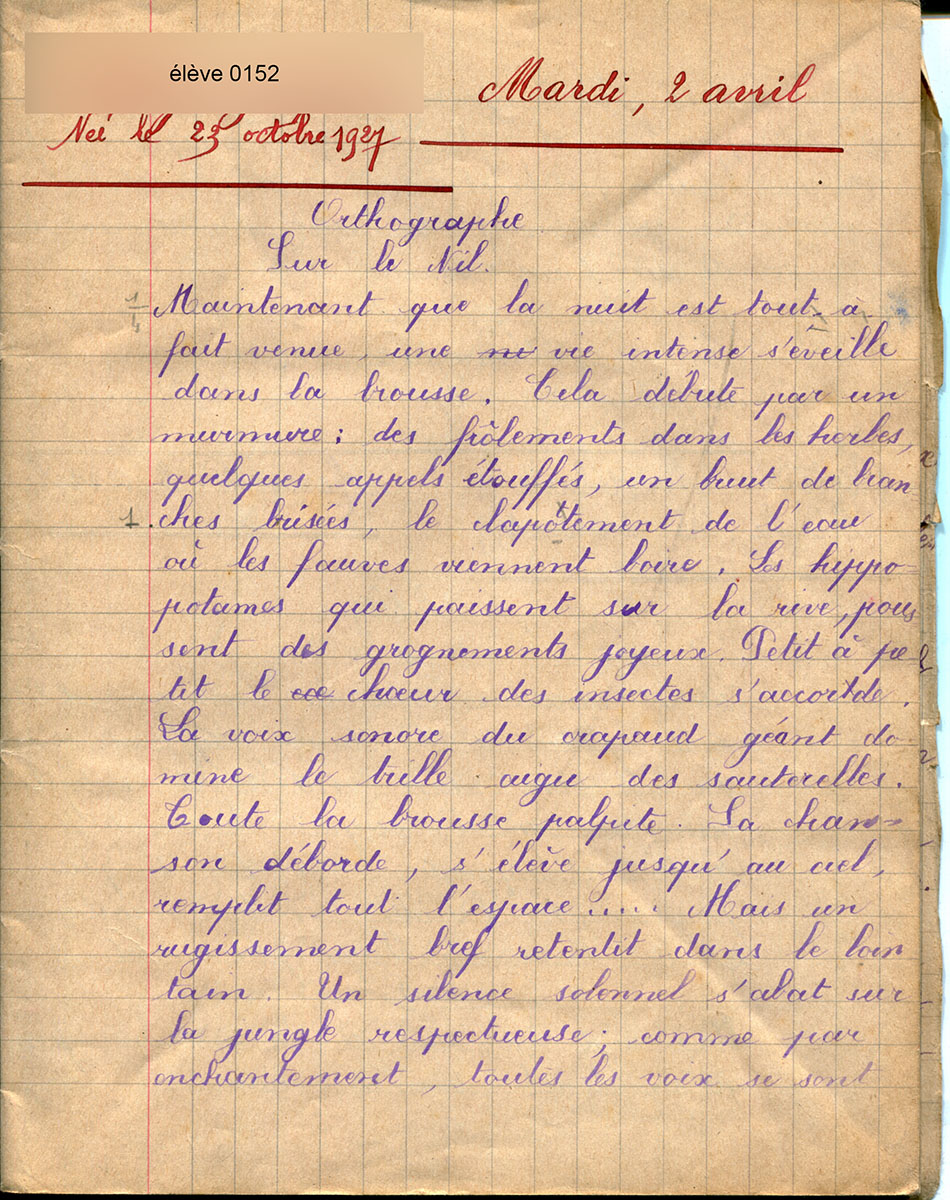 élève 0152
Mardi, 2 avril
Neé le 23 octobre 1927
Orthographe
Sur le Nil.
1/4
Maintenant que la nuit est tout-à-
fait venue, une ne vie intense s'éveille
dans la brousse. Cela débute par un
murmure : des frôlements dans les herbes,
quelques appels étouffés, un bruit de bran
1
ches brisées, le clapôtement de l'eau
où les fauves viennent boire. Les hippo-
potames qui paissent sur la rive, pous
sent des grognements joyeux. Petit à pe
tit le chœur des insectes s'accorde.
La voix sonore du crapaud géant do
mine le trille aigu des sauterelles.
Toute la brousse palpite. La chan-
son déborde, s'élève jusqu'au ciel,
remplit tout l'espace..... Mais un
rugissement bref retentit dans le loin
tain. Un silence solennel s'abat sur
la jungle respectueuse ; comme par
enchantement, toutes les voix se sont